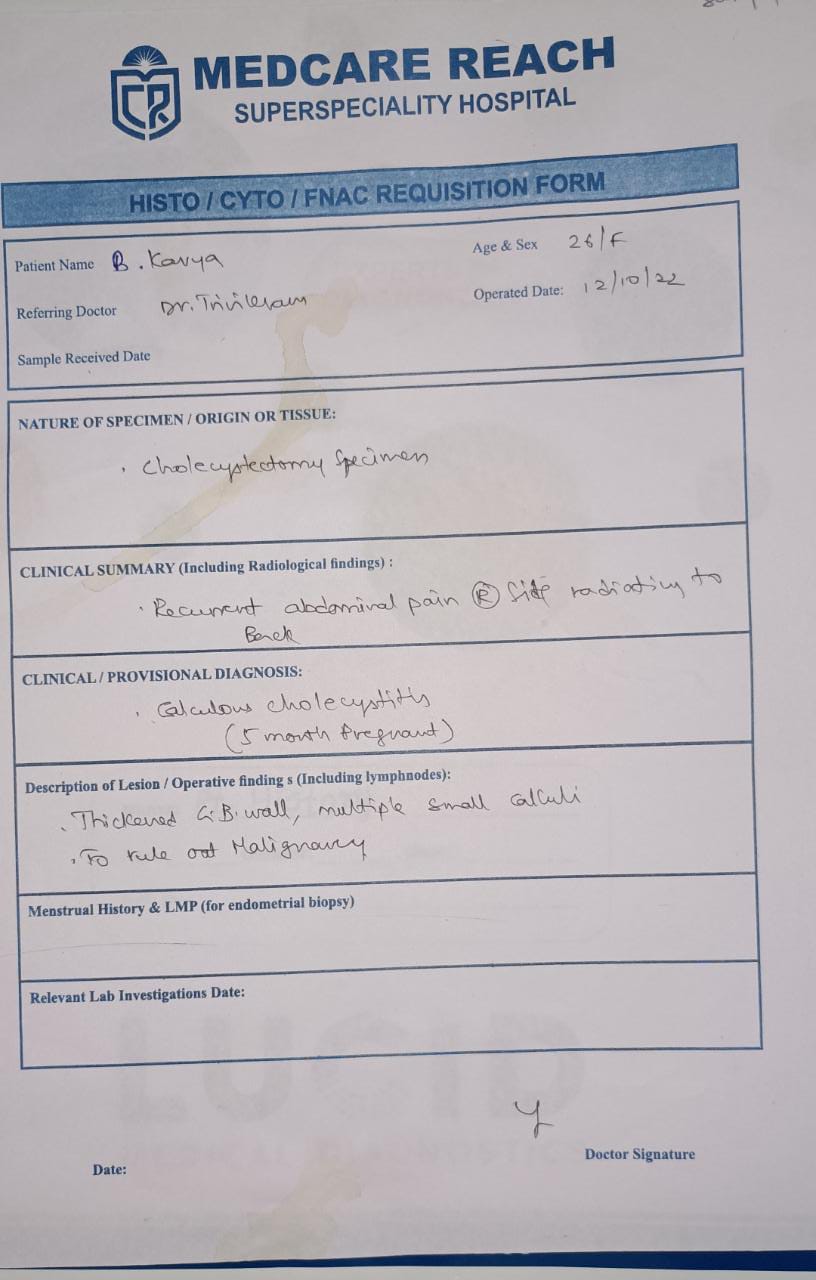 MEDCARE REACH
SUPERSPECIALITY HOSPITAL
HISTO / CYTO / FNAC REQUISITION FORM
Patient Name B. Kavya
Age & Sex 26/F
Referring Doctor Dr. Trivikram
Operated Date: 12/10/22
Sample Received Date
NATURE OF SPECIMEN / ORIGIN OR TISSUE:
. Cholecystectomy Specimen
CLINICAL SUMMARY (Including Radiological findings) :
. Recurrent abdominal pain Ⓡ Side radiating to
Back
CLINICAL / PROVISIONAL DIAGNOSIS:
. Calculous cholecystitis
(5 month Pregnant)
Description of Lesion / Operative finding s (Including lymphnodes):
. Thickened G.B. wall, multiple small calculi
. To rule out Malignancy
Menstrual History & LMP (for endometrial biopsy)
Relevant Lab Investigations Date:
Doctor Signature
Date: